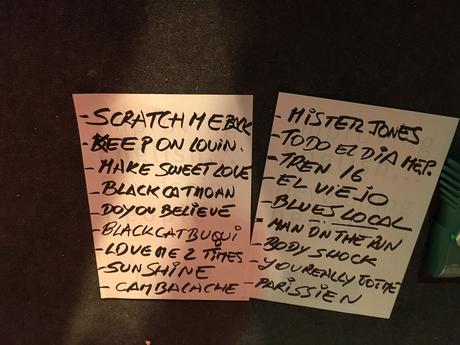 -SCRATCH ME BACK
-KEEP ON LOUIN.
-MAKE SWEET LOVE
-BLACK CAT MOAN
-DO YOU BELIEVE
-BLACK CAT BUGUI
-LOVE ME 2 TIMES
-SUNSHINE
-CAMBALACHE
-MISTER JONES
-TODO EL DIA MEP.
-TREN 16
-EL VIEJO
-BLUES LOCAL
-MAN ON THE RUN
-BODY SHOCK
-YOU REALLY
-PARISSIEN